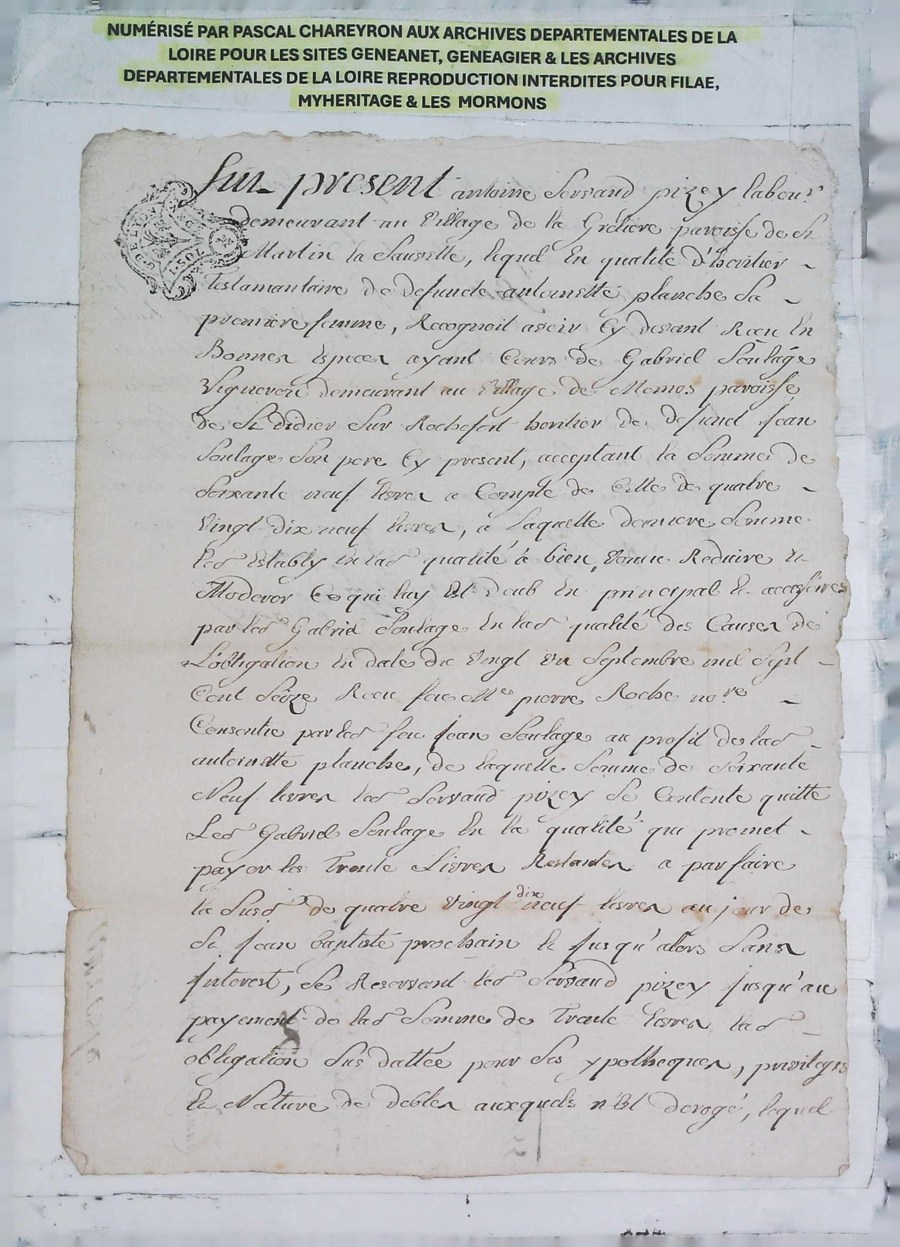 NUMÉRISÉ PAR PASCAL CHAREYRON AUX ARCHIVES DEPARTEMENTALES DE LA
LOIRE POUR LES SITES GENEANET, GENEAGIER & LES ARCHIVES
DEPARTEMENTALES DE LA LOIRE REPRODUCTION INTERDITES POUR FILAE,
MYHERITAGE & LES MORMONS
fut present antoine Servaud pizey labour
demeurant au village de la Griliere paroisse de St
Martin la Sauveté, lequel En qualité d'heritier
testamantaire de defuncte antoinette planche Sa
premiere femme, Recognoit avoir Cy devant Receu En
Bonnes Especes ayant Cours de Gabriel Soulage
Vigneron demeurant au village de paroisse
de St didier Sur Rochefort heritier de defunct Jean
Soulage Son pere Cy present, acceptant la Somme de
Soixante neuf livres a Compte de Celle de quatre
vingt dix neuf livres, a laquelle derniere Somme
led Estably En lad qualité a bien voulu Reduire Et
Moderer Ce qui luy Est deub En principal Et accessoires
par led Gabriel Soulage En lad qualité des Causes de
L'obligation En date du vingt un Septembre mil Sept
Cent Seize Receu feu Me pierre Roche nore
Consentie par led feu Jean Soulage au profit de lad
antoinette planche, de laquelle Somme de Soixante
Neuf livres led Servaud pizey Se Contente quitte
Led Gabriel Soulage En la qualité qui promet
payer les trente Livres Restantes a parfaire
la Susd de quatre vingt dix neuf livres au jour de
St Jean baptiste prochain Et jusqu'alors Sans
interest, Se Reservant led Servaud pizey jusqu'au
payement de lad Somme de trente livres lad
obligation Sus dattée pour Ses ypotheques, privileges
Et Nature de debtes auxquels n'Est derogé, lequel